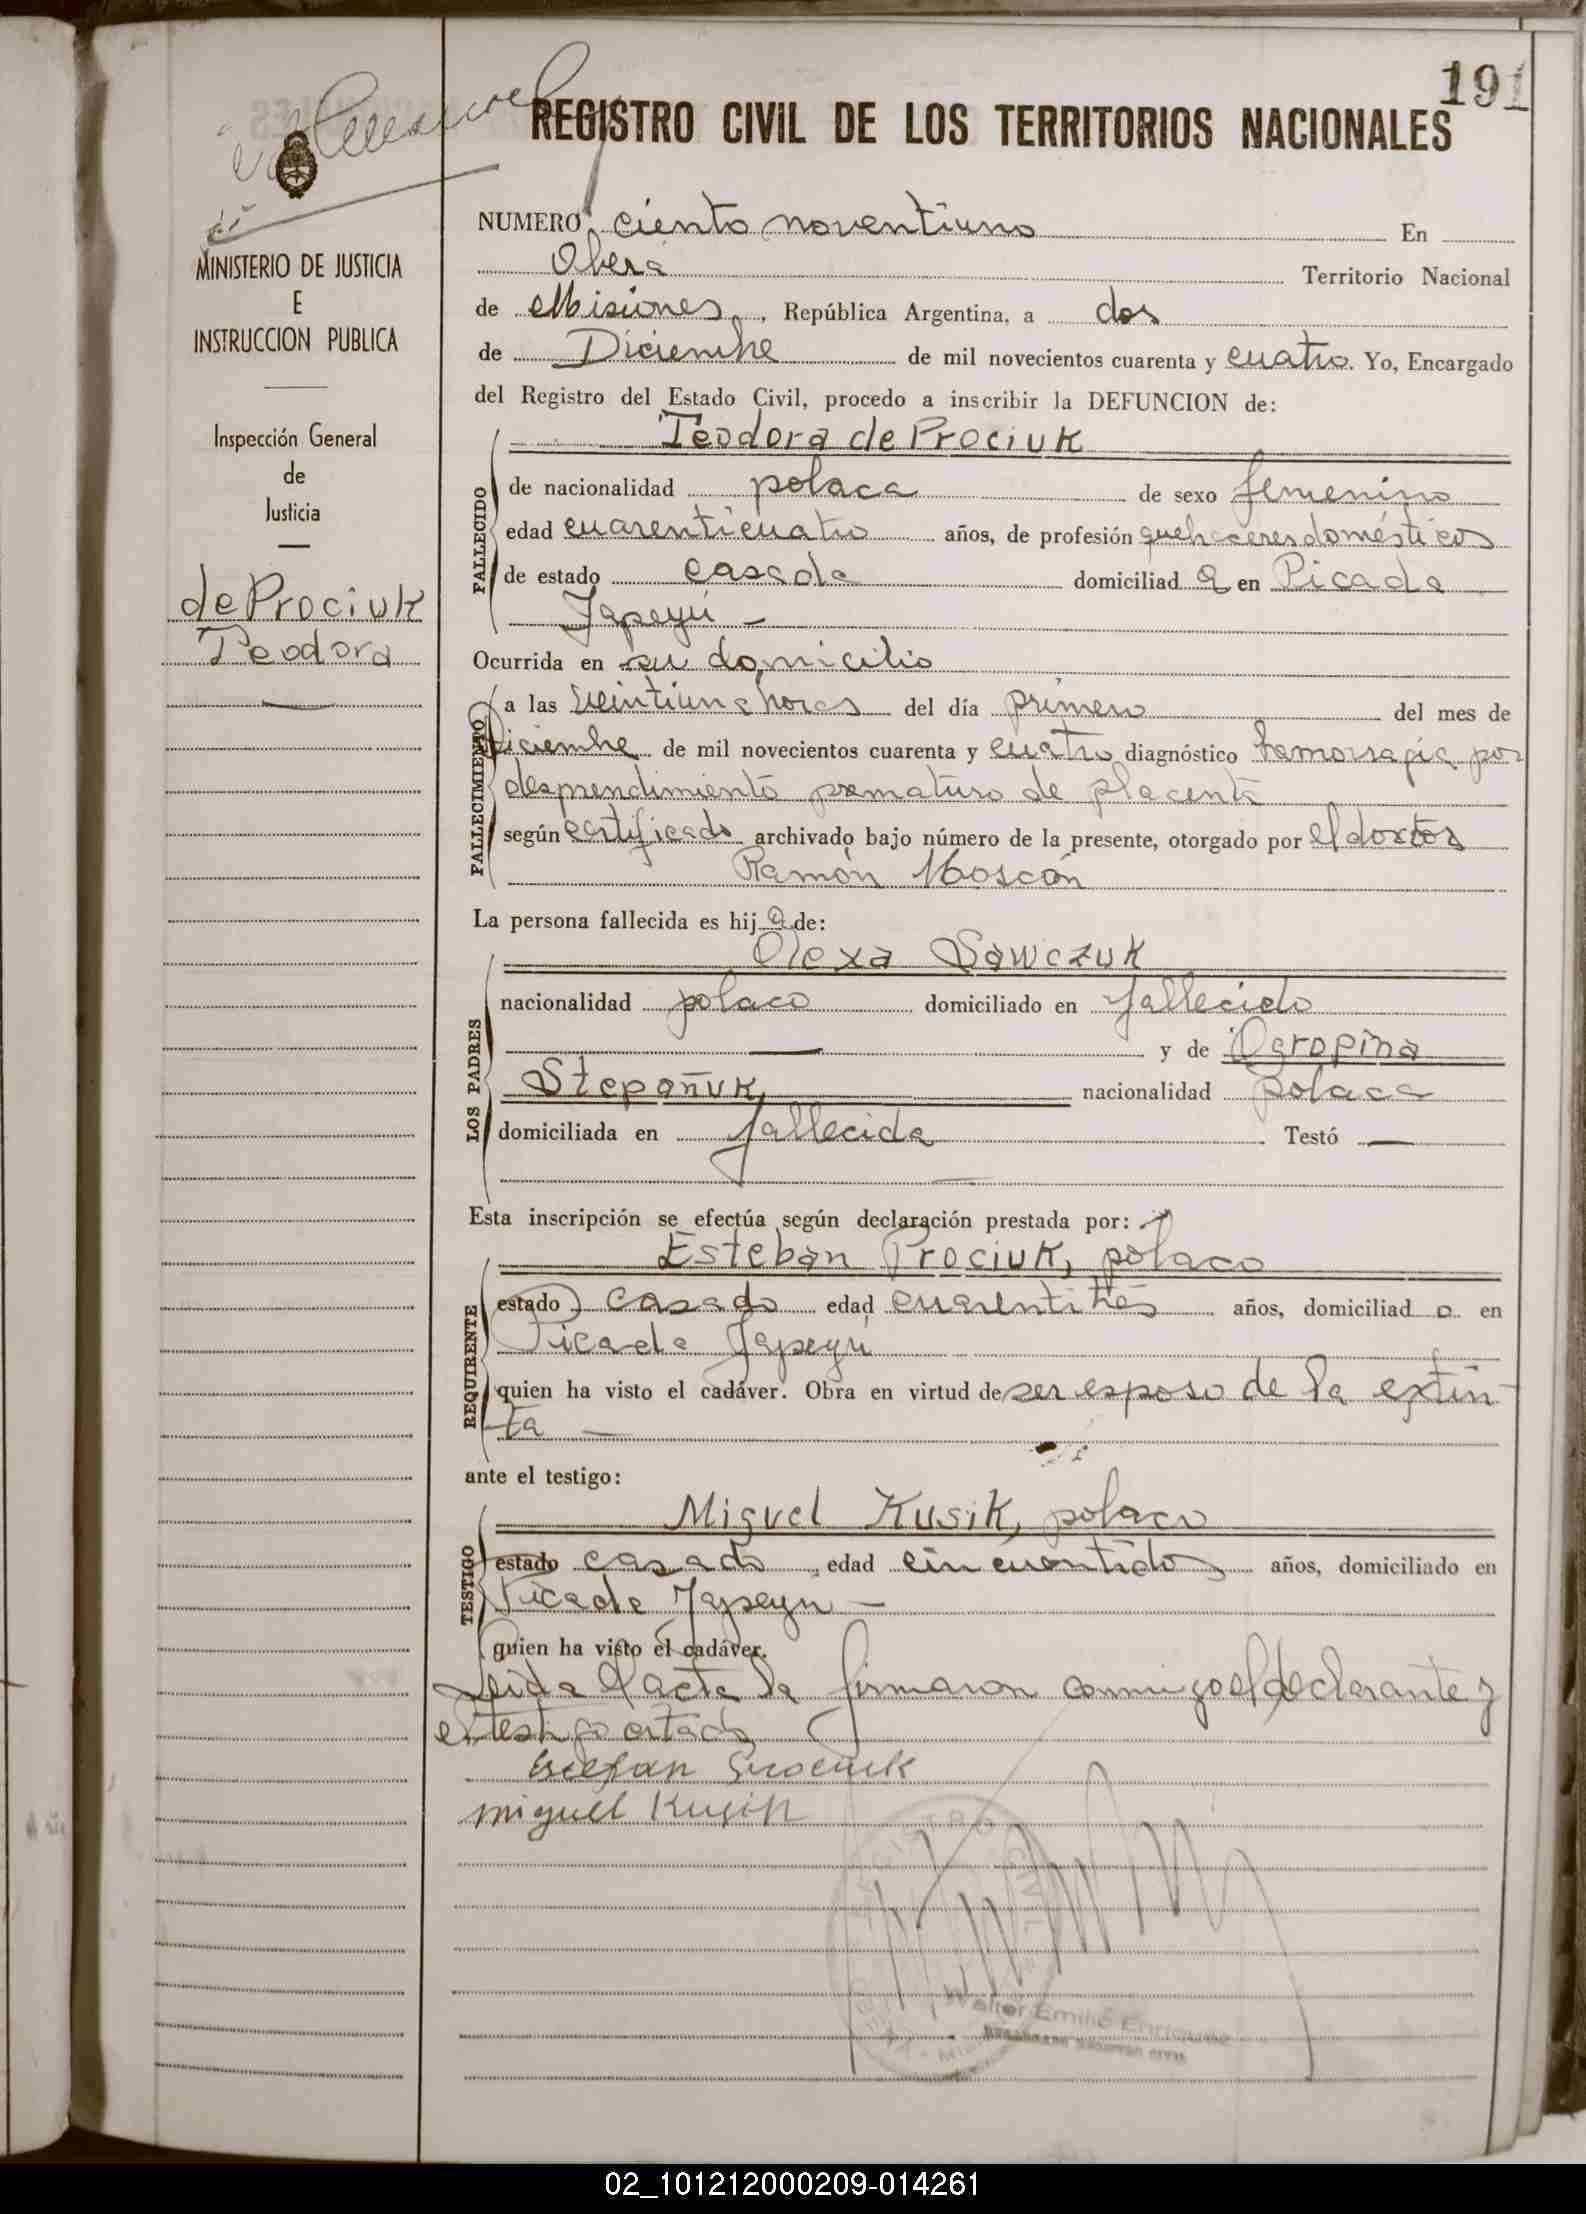 191
REGISTRO CIVIL DE LOS TERRITORIOS NACIONALES
MINISTERIO DE JUSTICIA
E
INSTRUCCION PUBLICA
Inspección General
de
Justicia
de Prociuk
Teodora
NUMERO ciento noventiuno En
Oberá Territorio Nacional
de Misiones, República Argentina, a dos
de Diciembre de mil novecientos cuarenta y cuatro. Yo, Encargado
del Registro del Estado Civil, procedo a inscribir la DEFUNCION de:
Teodora de Prociuk
FALLECIDO
de nacionalidad polaca de sexo femenino
edad cuarenticuatro años, de profesión quehaceres domésticos
de estado casada domiciliad a en Picada
Yapeyú -
Ocurrida en su domicilio
FALLECIMIENTO
a las veintiuna horas del día primero del mes de
Diciembre de mil novecientos cuarenta y cuatro diagnóstico hemorragia por
desprendimiento prematuro de placenta
según certificado archivado bajo número de la presente, otorgado por el doctor
Ramón Moscón
La persona fallecida es hij a de:
Olexa Sawczuk
LOS PADRES
nacionalidad polaco domiciliado en fallecido
— y de Agropina
Stepañuk, nacionalidad polaca
domiciliada en fallecida. Testó —
Esta inscripción se efectúa según declaración prestada por:
Esteban Prociuk, polaco
REQUIRENTE
estado casado edad cuarentitrés años, domiciliad o en
Picada Yapeyú
quien ha visto el cadáver. Obra en virtud de ser esposo de la extin-
ta —
ante el testigo:
Miguel Kusik, polaco
TESTIGO
estado casado, edad cincuentidos años, domiciliado en
Picada Yapeyu -
quien ha visto el cadáver.
Leida el acta la firmaron conmigo el declarante y
el testigo citado
miguel Kusik
Walter Emilio Enriquez
02_101212000209-014261